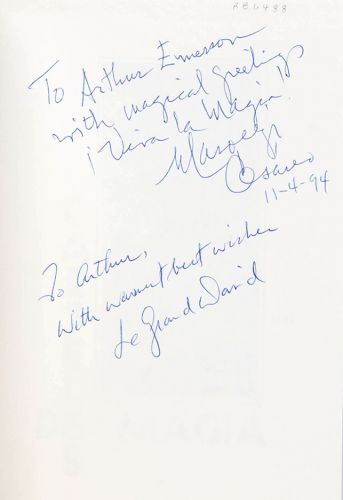 RBG488
To Arthur Emerson
with magical greetings
¡Viva la Magia!
Marco
Cesareo
11-4-94
To Arthur,
With warmest best wishes
Le Grand David